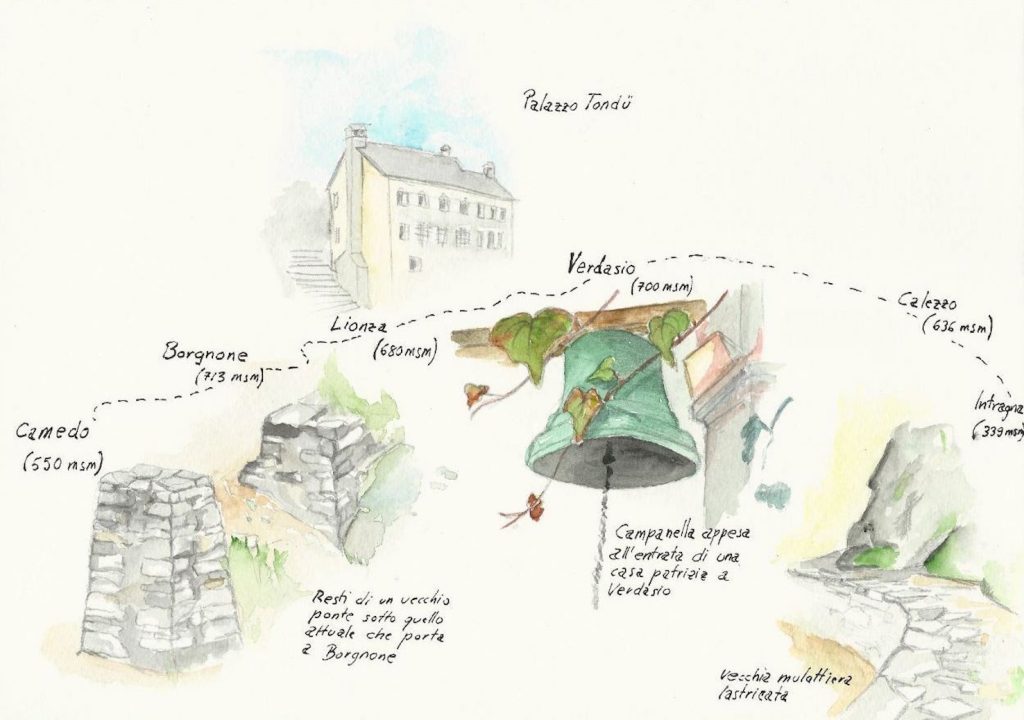 Palazzo Tondü
Verdasio
(700 msm)
Calezzo
(636 msm)
Lionza
(680 msm)
Borgnone
(713 msm)
Intragna
(339 msm)
Camedo
(550 msm)
Campanella appesa
all'entrata di una
casa patrizia a
Verdasio
Resti di un vecchio
ponte sotto quello
attuale che porta
a Borgnone
vecchia mulattiera
lastricata